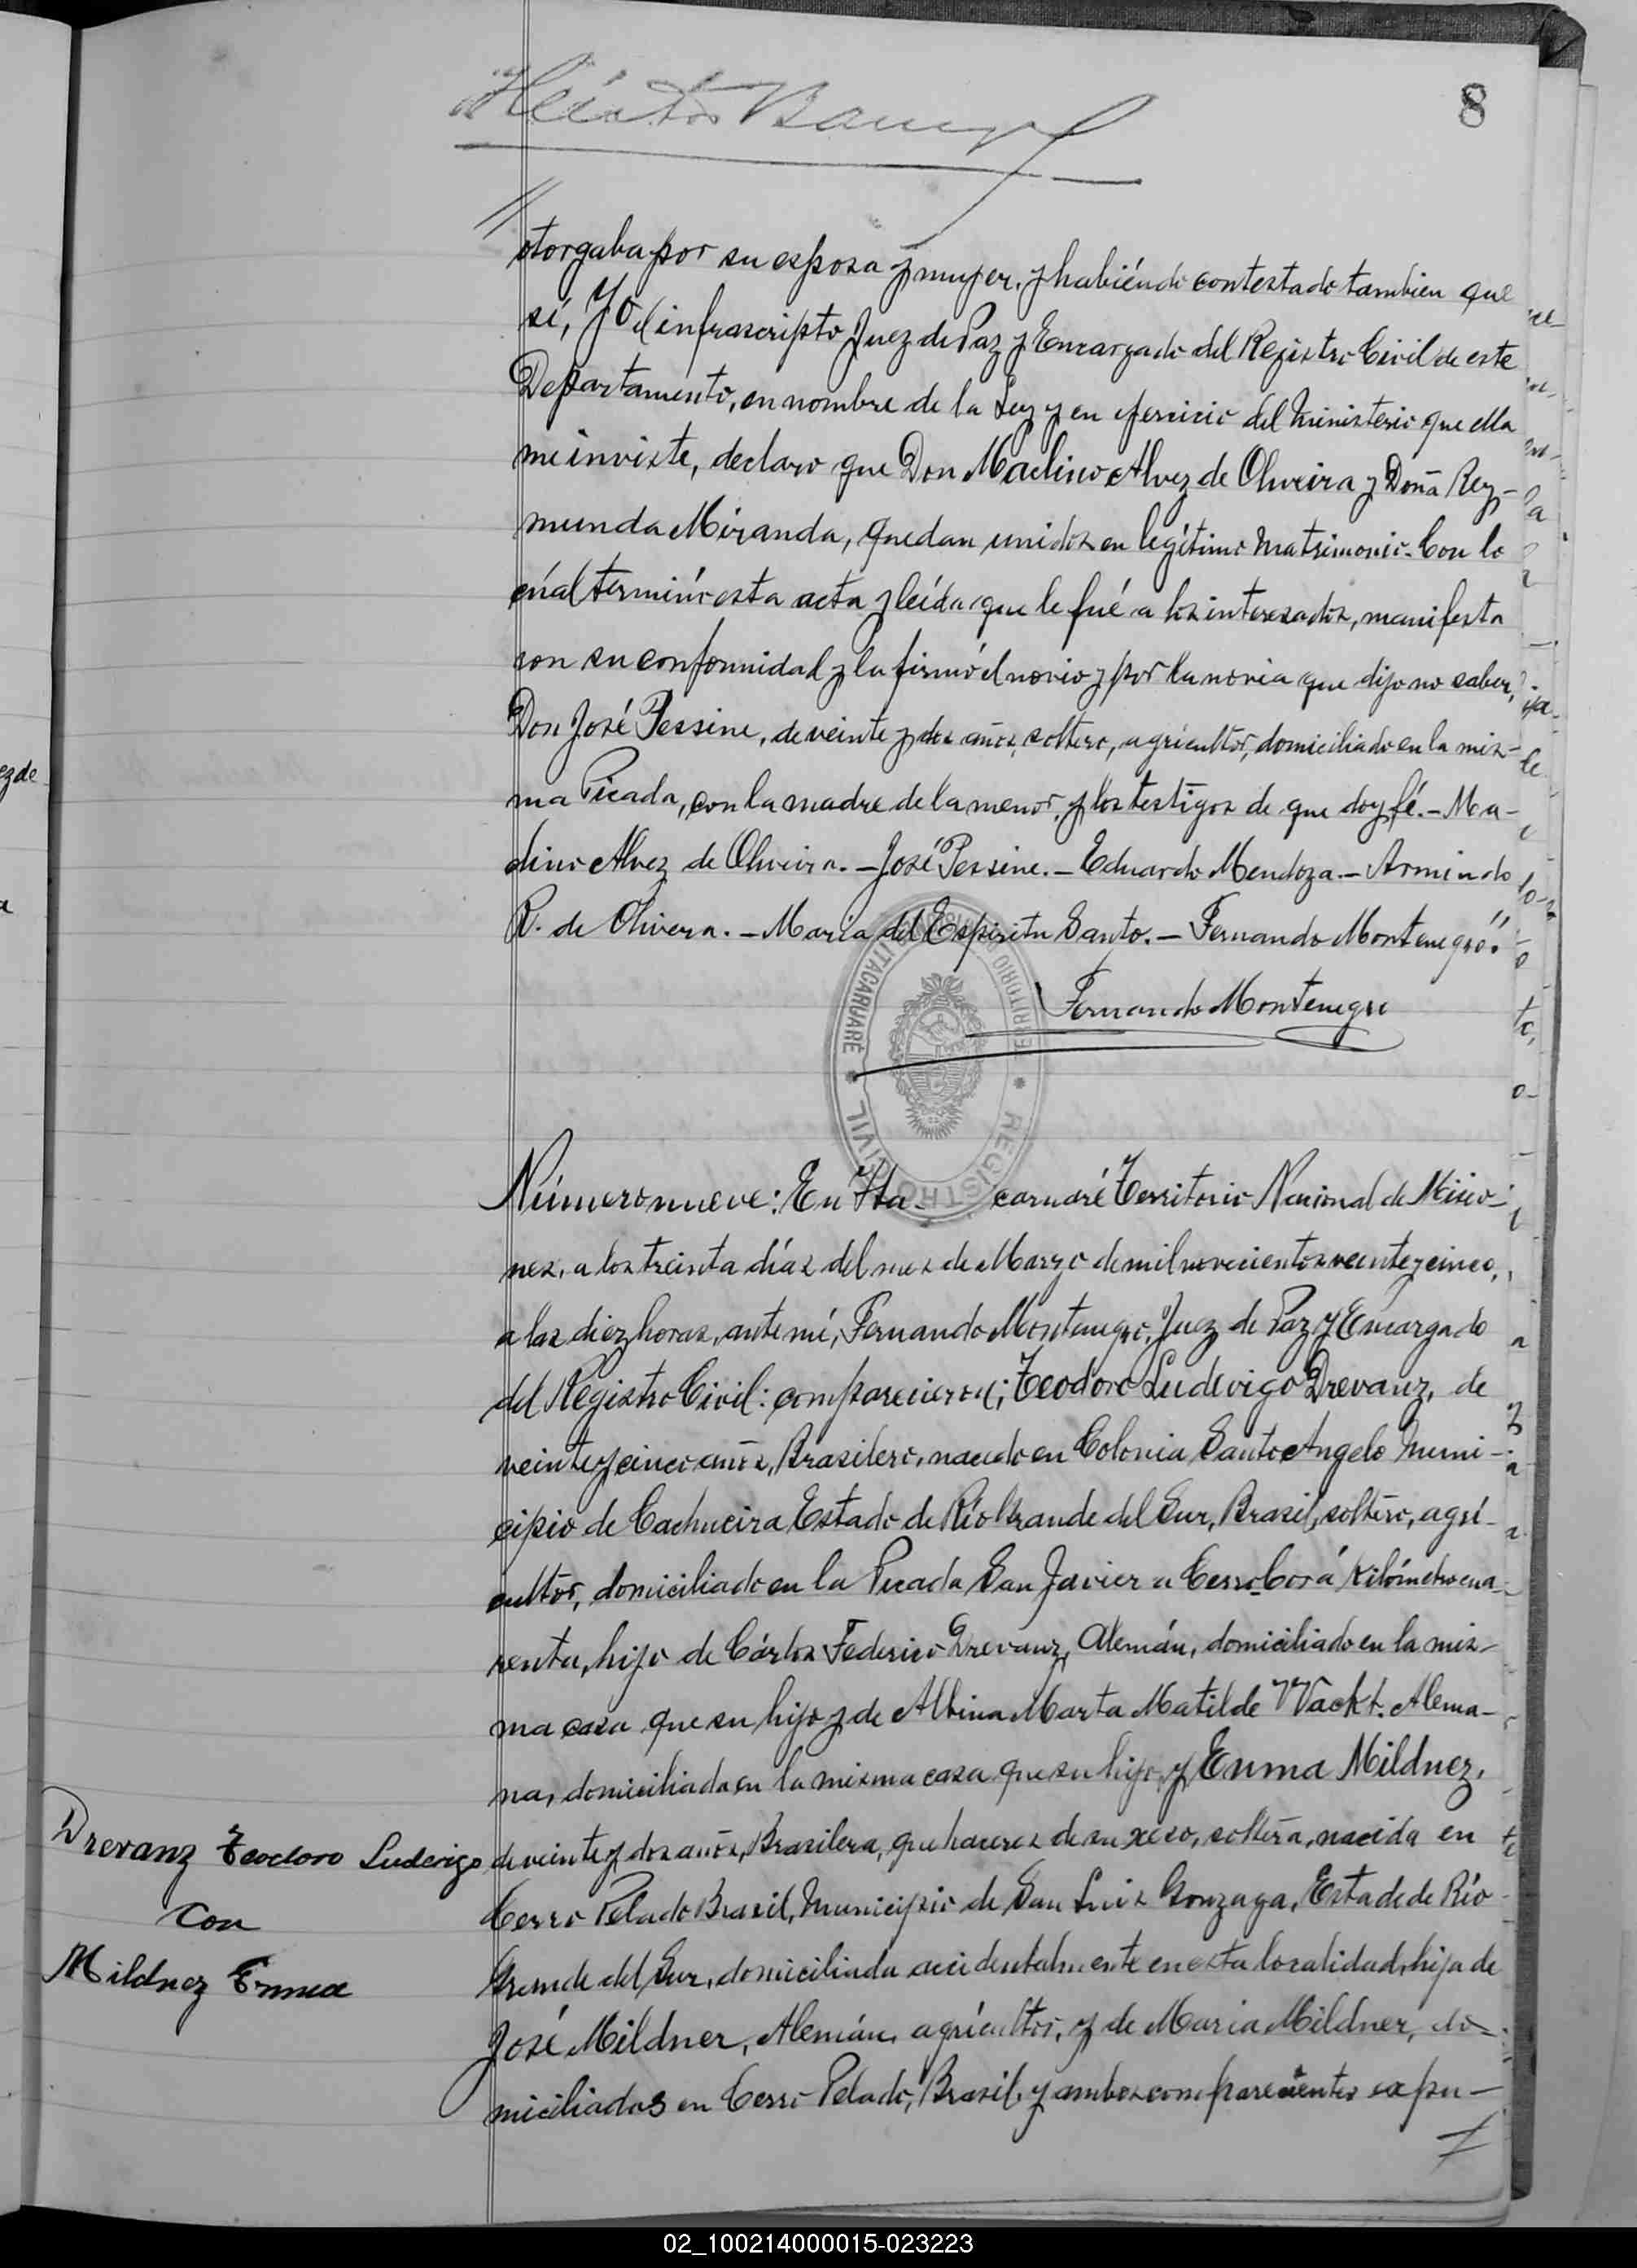 8
Héctor
// otorgaba por su esposa y mujer, y habiéndo contestado tambien que
sí, Yo el infrascripto Juez de Paz y Encargado del Registro Civil de este
Departamento, en nombre de la Ley y en ejercicio del Ministerio que ella
me inviste, declaro que Don Maclino Alvez de Oliveira y Doña Rey-
munda Miranda, quedan unidos en legítimo Matrimonio. Con lo
cuál terminó esta acta y leída que le fué a los interesados, manifesta
ron su conformidad y la firmó el novio y por la novia que dijo no saber,
Don José Pessine, de veinte y dos años, soltero, agricultor, domiciliado en la mis-
ma Picada, con la madre de la menor, y los testigos de que doy fé.- Ma-
clino Alvez de Oliveira.- José Pessine.- Eduardo Mendoza.- Armindo
R. de Olivera.- Maria del Espiritu Santo.- Fernando Montenegro."
Fernando Montenegro
REGISTRO CIVIL * ITACARUARÉ * TERRITORIO
Número nueve: En Ita- caruaré Territorio Nacional de Misio-
nes, a los treinta días del mes de Marzo de mil novecientos veinte y cinco,
a las diez horas, ante mí, Fernando Montenegro, Juez de Paz y Encargado
del Registro Civil: comparecieron; Teodoro Ludevigo Drevanz, de
veinte y cinco años, Brasilero, nacido en Colonia Santo Angelo Muni-
cipio de Cachueira Estado de Río Grande del Sur, Brasil, soltero, agrí-
cultor, domiciliado en la Picada San Javier a Cerro-Corá Kilómetro cua-
renta, hijo de Cárlos Federico Drevanz, Alemán, domiciliado en la mis-
ma casa que su hijo y de Albina Marta Matilde Wackt. Alema-
na, domiciliada en la misma casa que su hijo, y Enma Mildnez,
de veinte y dos años, Brasilera, que haceres de su xeso, soltera, nacida en
Cerro Pelado Brasil, Municipio de San Luis Gonzaga, Estado de Río
Grande del Sur, domiciliada accidentalmente en esta localidad, hija de
José Mildner, Alemán, agrícultor, y de Maria Mildner, do-
miciliados en Cerro Pelado, Brasil, y ambos comparecientes expu-
Drevanz Teodoro Luderigo
Con
Mildnez Enma
02_100214000015-023223